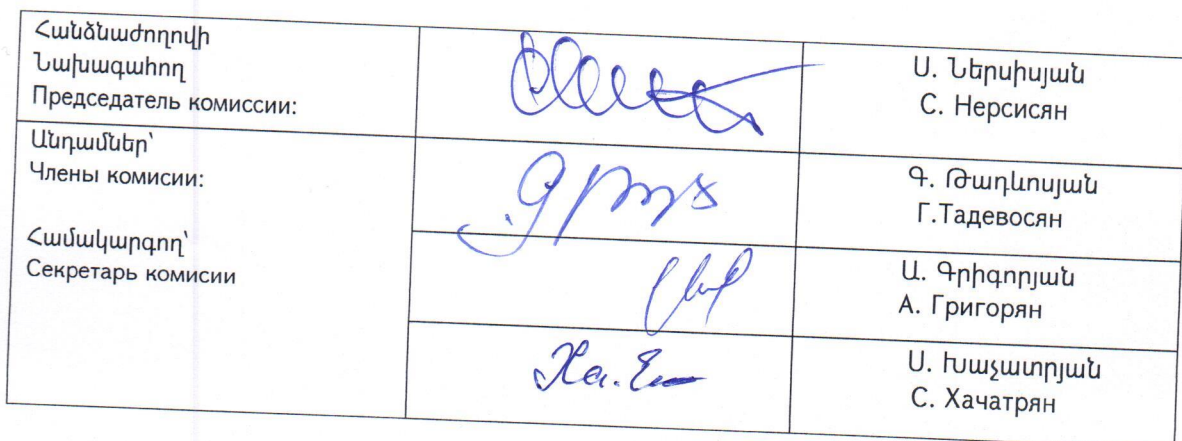 Հանձնաժողովի
Նախագահող
Председатель комиссии:
Ս. Ներսիսյան
С. Нерсисян
Անդամներ՝
Члены комисии:
Համակարգող՝
Секретарь комисии
Գ. Թադևոսյան
Г.Тадевосян
Ա. Գրիգորյան
А. Григорян
Ս. Խաչատրյան
С. Хачатрян